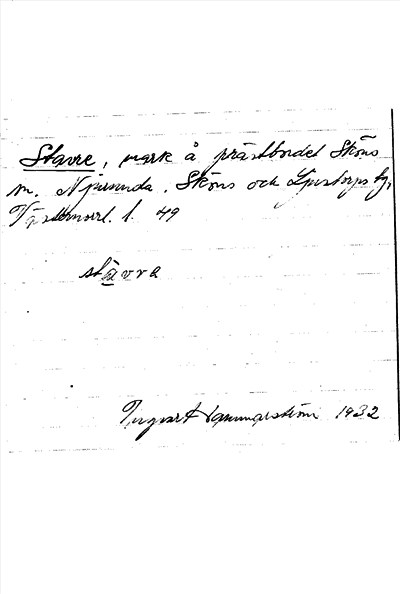 Stavre, mark å prästbordet Sköns
m. Njurunda, Sköns och Ljustorps tg,
Västernorrl. l. 49
stavra
Ingvart Hammarström 1932